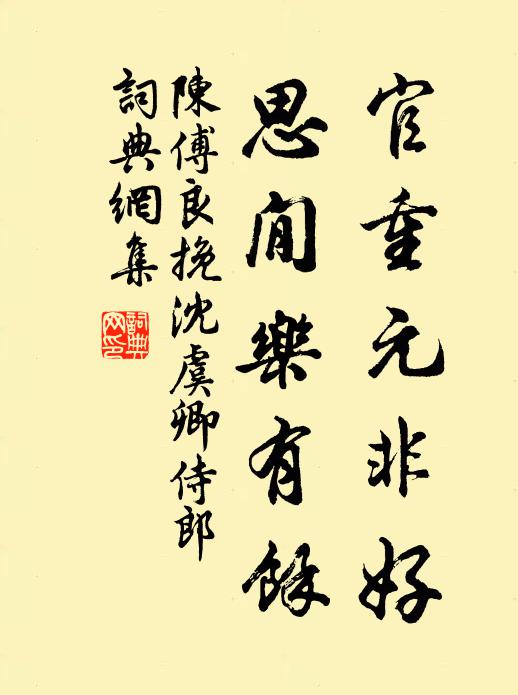 官重元非好
思閒樂有餘
陳傅良挽沈虞卿侍郎
詞典網集
詞典网印